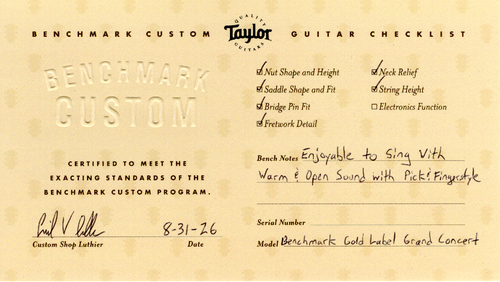 BENCHMARK CUSTOM QUALITY Taylor GUITARS GUITAR CHECKLIST
BENCHMARK
CUSTOM
CERTIFIED TO MEET THE
EXACTING STANDARDS OF THE
BENCHMARK CUSTOM PROGRAM.
8-31-26
Custom Shop Luthier Date
Nut Shape and Height Neck Relief
Saddle Shape and Fit String Height
Bridge Pin Fit Electronics Function
Fretwork Detail
Bench Notes Enjoyable to Sing With
Warm & Open Sound with Pick & Fingerstyle
Serial Number
Model Benchmark Gold Label Grand Concert